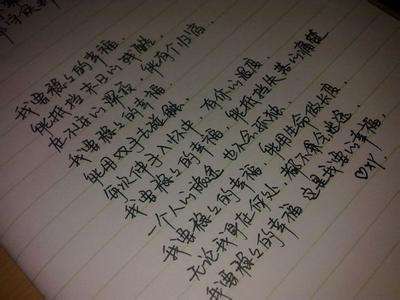 我要稳々的幸福.
能抵挡末日的残酷
在不安的深夜 能有个归宿.
我要稳々的幸福
能用双手去碰触
每次伸手入怀中 有你的温度
我要稳々的幸福 能抵挡失落的痛楚
一个人的路途 也不会孤独
我要稳々的幸福 能用生命做长度
无论我身在何处. 都不会迷途
我要稳々的幸福 这是我要的幸福.